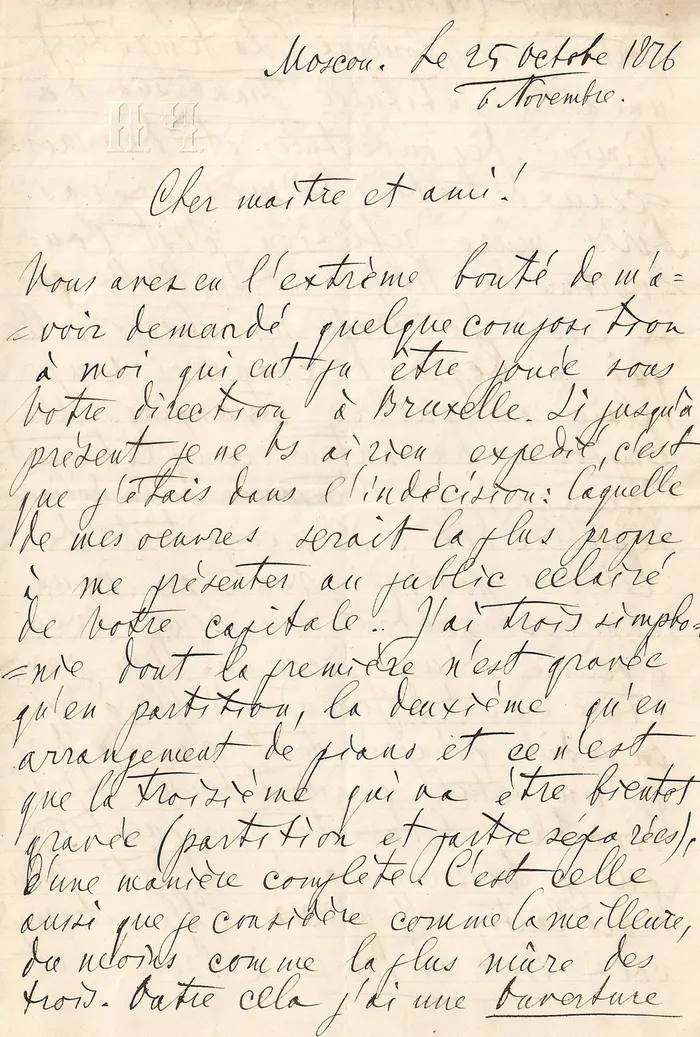 Moscou. Le 25 Octobe 1876
6 Novembre.
П. Ч
Cher maitre et ami!
Vous avez eu l'extrème bonté de m'a=
=voir demandé quelque composition
à moi qui eut pu être jouée sous
Votre direction à Bruxelle. Si jusqu'à
présent je ne Vs ai rien expedié, c'est
que j'étais dans l'indécision: laquelle
de mes oeuvres serait la plus propre
à me présenter au public eclairé
de Votre capitale.. J'ai trois simpho=
=nie dont la première n'est gravée
qu'en partition, la deuxième qu'en
arrangement de piano et ce n'est
que la troisième qui va être bientot
gravée (partition et partie séparées),
d'une manière complète. C'est celle
aussi que je considère comme la meilleure,
du moins comme la plus mûre des
trois. Outre cela j'ai une Ouverture